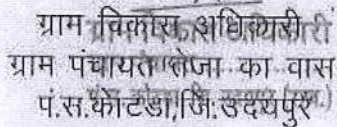 ग्राम विकास अधिकारी
ग्राम पंचायत तेजा का वास
पं.स.कोटडा,जि.उदयपुर